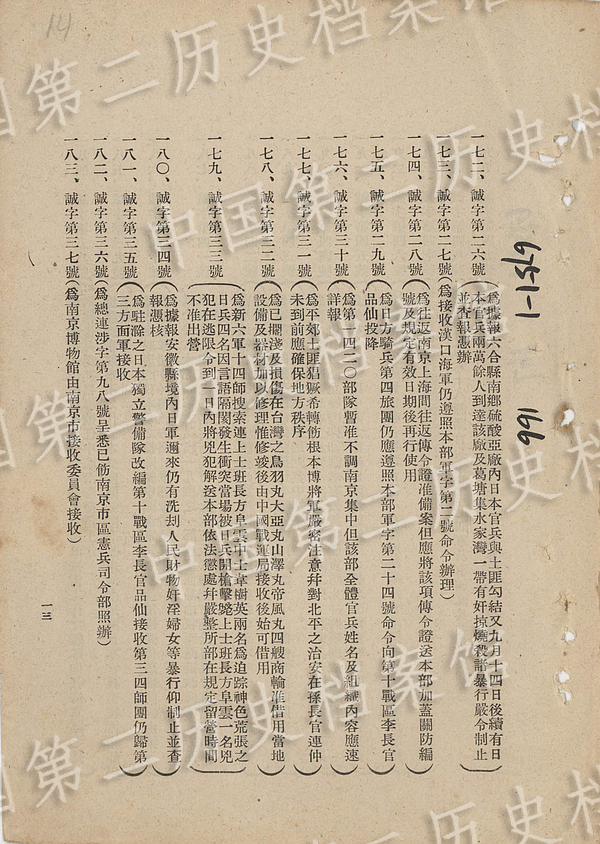 14
6751-1
166
一七二、誠字第二六號（爲據報六合縣南鄉硫酸亞廠內日本官兵與土匪勾結又九月十四日後續有日
本官兵兩萬餘人到達該廠及葛塘集水家灣一帶有奸掠燒殺諸暴行嚴令制止
並查報憑辦）
一七三、誠字第二七號（爲接收漢口海軍仍遵照本部軍字第二號命令辦理）
一七四、誠字第二八號（爲往返南京上海間往返傳令證准備案但應將該項傳令證送本部加蓋關防編
號及規定有效日期後再行使用）
一七五、誠字第二九號（爲日方騎兵第四旅團仍應遵照本部軍字第二十四號命令向第十戰區李長官
品仙投降）
一七六、誠字第三十號（爲第一四二〇部隊暫准不調南京集中但該部全體官兵姓名及組織內容應速
詳報）
一七七、誠字第三一號（爲平郊土匪猖厥希轉飭根本博將軍嚴密注意幷對北平之治安在孫長官連仲
未到前應確保地方秩序）
一七八、誠字第三二號（爲已擱淺及損傷在台灣之鳥羽丸大亞丸山澤丸帝風丸四艘商輪准借用當地
設備及器材加以修理惟修竣後由中國戰運局接收後始可借用）
一七九、誠字第三三號（爲新六軍十四師搜索連上士班長方阜雲中士草樹英兩名爲追踪神色荒張之
日兵四名因言語隔閡發生衝突當場被日兵開槍擊斃上士班長方阜雲一名兇
犯在逃限令到一日內將兇犯解送本部依法懲處幷嚴整所部在規定留營時間
不准出營）
一八〇、誠字第三四號（爲據報安徽縣境內日軍邇來仍有洗刦人民財物奸淫婦女等暴行仰制止並查
報憑核）
一八一、誠字第三五號（爲駐滁之日本獨立警備隊改編第十戰區李長官品仙接收第三四師團仍歸第
三方面軍接收）
一八二、誠字第三六號（爲總連涉字第九八號呈悉已飭南京市區憲兵司令部照辦）
一八三、誠字第三七號（爲南京博物館由南京市接收委員會接收）
一三
中国第二历史档案馆
中国第二历史档案馆
中国第二历史档案馆
中国第二历史档案馆